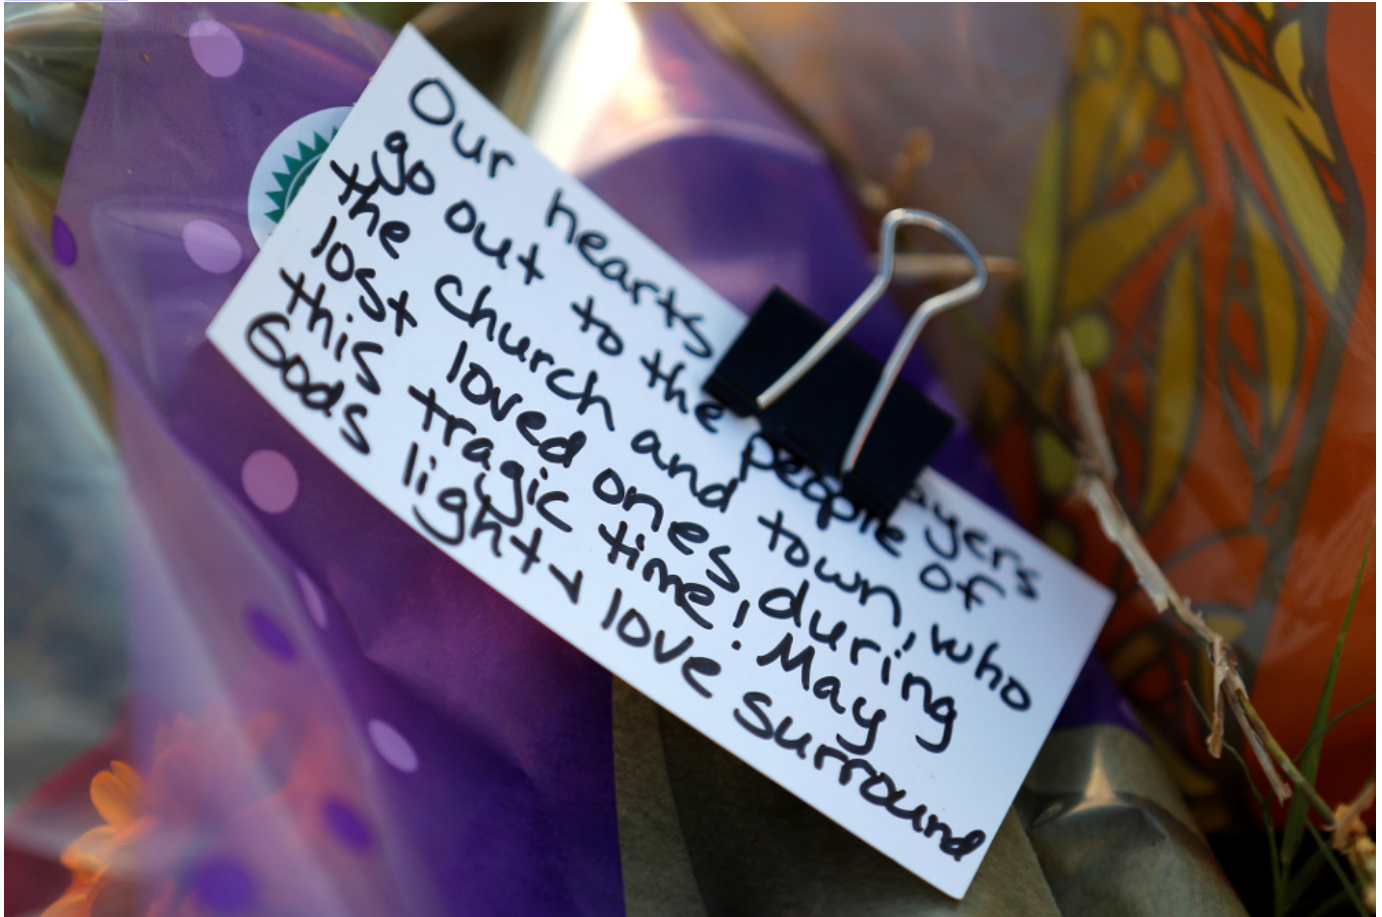 Our hearts ayers
go out to the people of
the church and town, who
lost loved ones during
this tragic time! May
Gods light + love surround